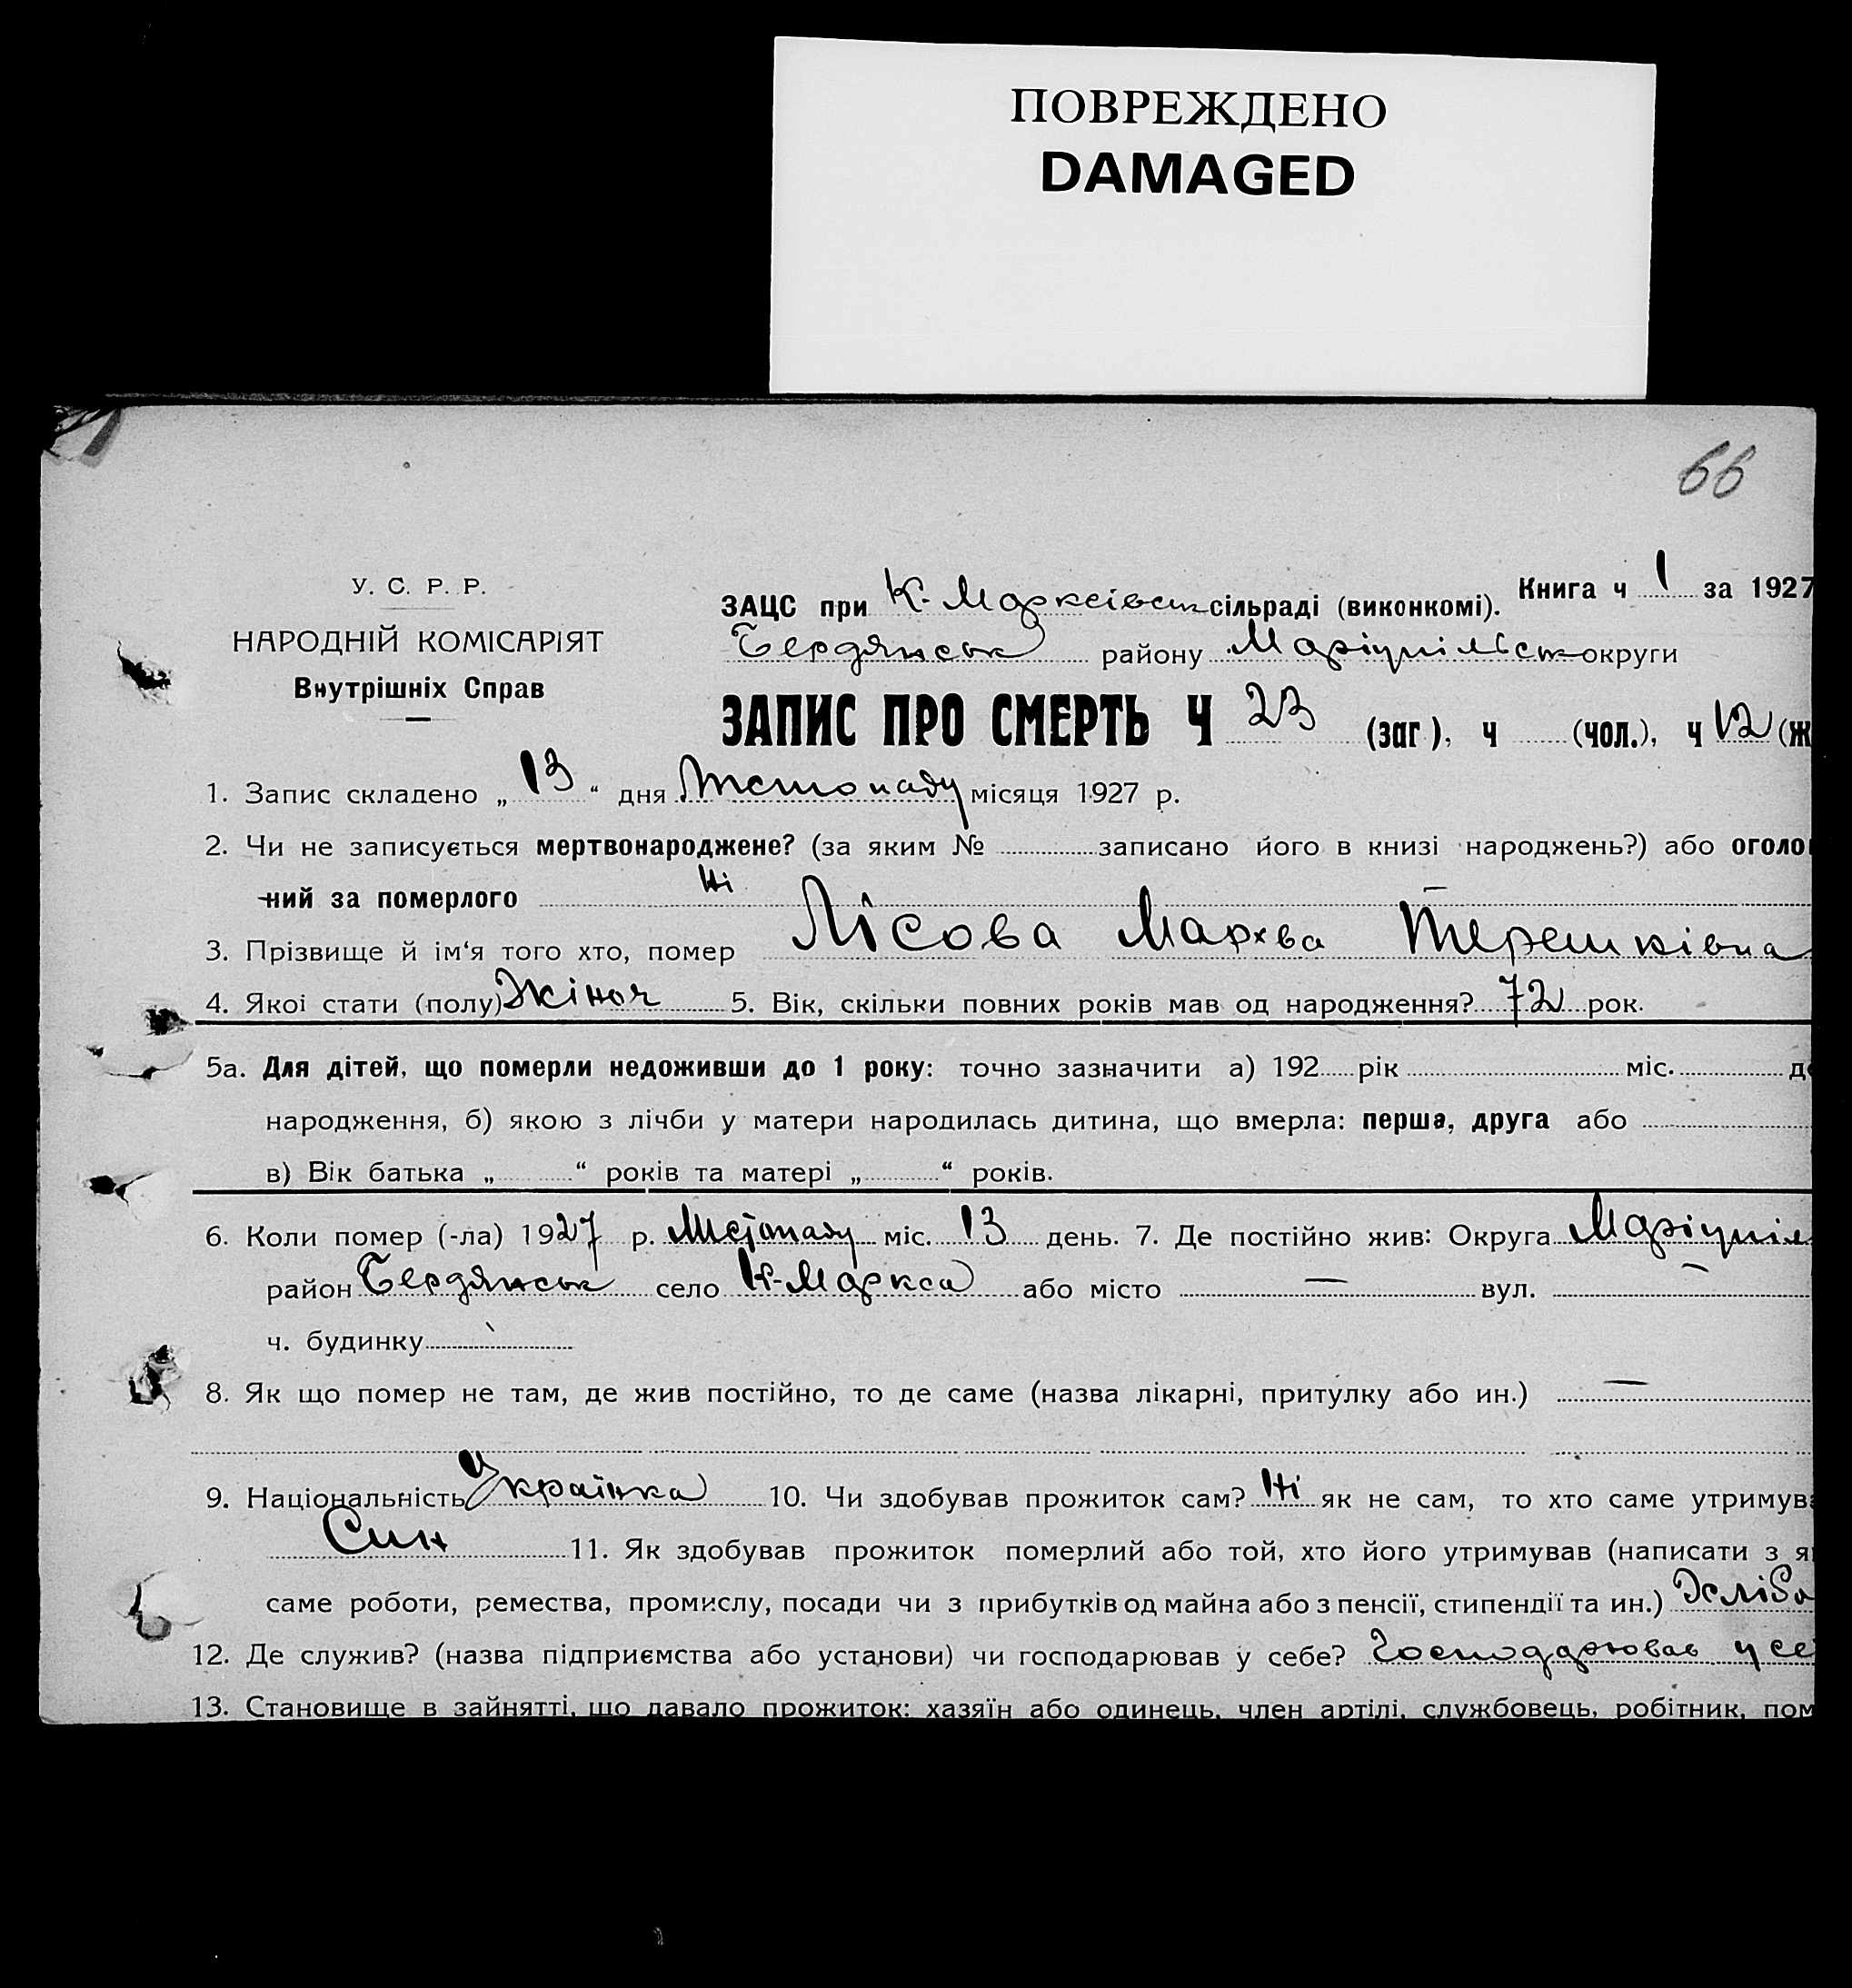 ПОВРЕЖДЕНО
DAMAGED
66
У. С. Р. Р.
НАРОДНІЙ КОМІСАРІЯТ
Внутрішніх Справ
Книга ч 1 за 1927
ЗАЦС при К. Марксівськ сільраді (виконкомі).
Бердянськ району Маріупільськ округи
ЗАПИС ПРО СМЕРТЬ Ч 23 (заг), ч (чол.), ч 12 (ж
1. Запис складено „ 13 “ дня Листопаду місяця 1927 р.
2. Чи не записується мертвонароджене? (за яким № записано його в книзі народжень?) або оголо
-ний за померлого Ні —
3. Прізвище й ім‘я того хто, помер Лісова Мархва Терешківна
4. Якої стати (полу) Жіноч 5. Вік, скільки повних років мав од народження? 72 рок.
5а. Для дітей, що померли недоживши до 1 року: точно зазначити а) 192 рік міс. д
народження, б) якою з лічби у матери народилась дитина, що вмерла: перша, друга або
в) Вік батька „ “ років та матері „ “ років.
6. Коли помер (-ла) 1927 р. Листопаду міс. 13 день. 7. Де постійно жив: Округа Маріупіл
район Бердянськ село К-Маркса або місто — вул. —
ч. будинку
8. Як що помер не там, де жив постійно, то де саме (назва лікарні, притулку або ин.) —
9. Національність Українка 10. Чи здобував прожиток сам? Ні як не сам, то хто саме утримув
Син 11. Як здобував прожиток померлий або той, хто його утримував (написати з я
саме роботи, ремества, промислу, посади чи з прибутків од майна або з пенсії, стипендії та ин.) Хліба
12. Де служив? (назва підприємства або установи) чи господарював у себе? Господарював у се
13. Становище в зайнятті, що давало прожиток: хазяїн або одинець, член артілі, службовець, робітник, пом